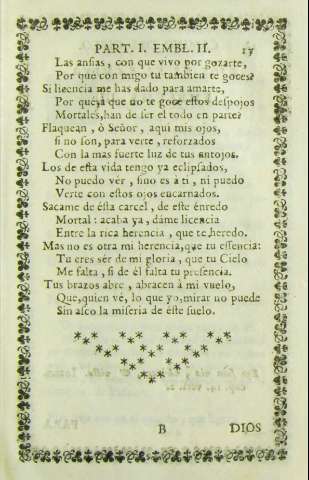 PART. I. EMBL. II. 17
Las ansias, con que vivo por gozarte,
Por què con migo tu tambien te goces?
Si licencia me has dado para amarte,
Por què, ya que no te goce estos despojos
Mortales, han de ser el todo en parte?
Flaquean, ò Señor, aqui mis ojos,
si no son, para verte, reforzados
Con la mas fuerte luz de tus antojos.
Los de esta vida tengo ya eclipsados,
No puedo ver, sino es à ti, ni puedo
Verte con estos ojos encarnados.
Sacame de ésta carcel, de este énredo
Mortal: acaba ya, dáme licencia
Entre la rica herencia, que te heredo.
Mas no es otra mi herencia, que tu essencia:
Tu eres sér de mi gloria, que tu Cielo
Me falta, si de él falta tu presencia.
Tus brazos abre, abracen à mi vuelo,
Que, quien vé, lo que yo, mirar no puede
Sin asco la miseria de éste suelo.
B DIOS